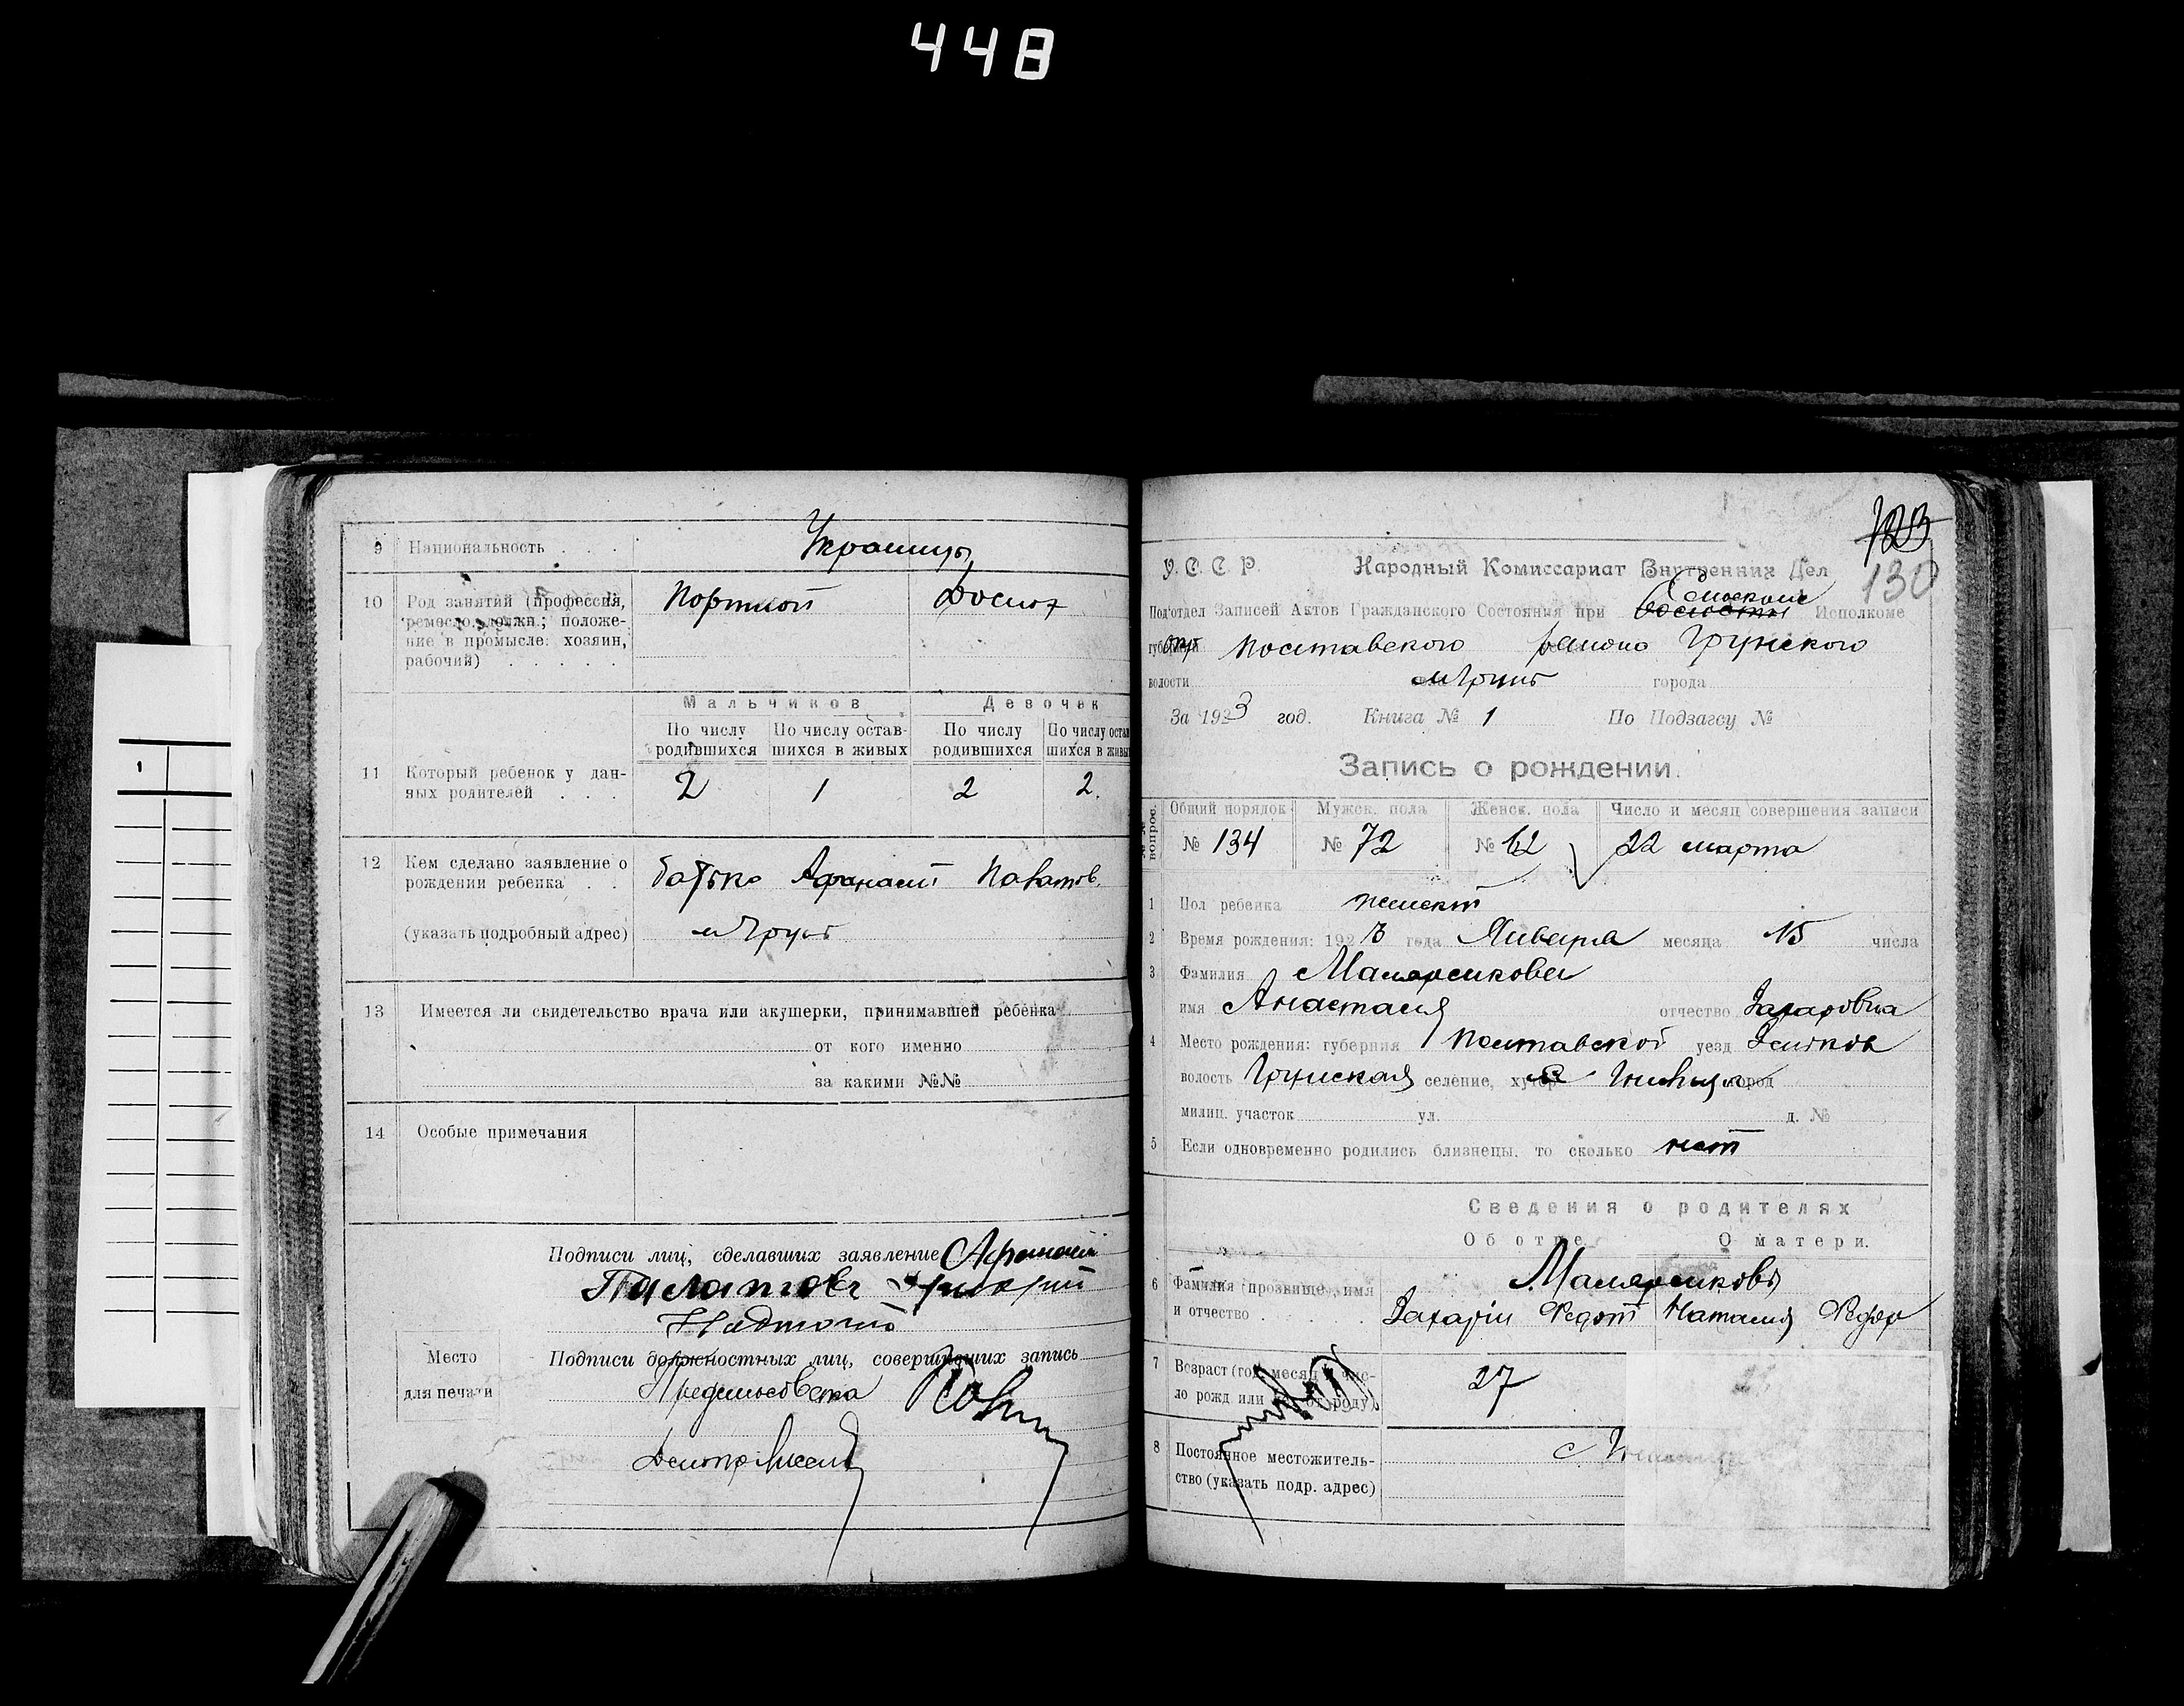 448
9 Национальность . . . Украинцы
10 Род занятий (профессия, Портной
ремесло, должн.; положе-
ние в промысле: хозяин,
рабочий) . . . . .
Мальчиков Девочек
По числу родившихся По числу остав-шихся в живых По числу родившихся По числу остав шихся в живы
11 Который ребенок у дан-
ных родителей . . . 2 1 2 2.
12 Кем сделано заявление о
рождении ребенка . . батько Афанасий
(указать подробный адрес) м Грунь
13 Имеется ли свидетельство врача или акушерки, принимавшей ребенка
от кого именно
за какими №№
14 Особые примечания
Подписи лиц, сделавших заявление Афанасий
Палатовъ
Место
для печати
Подписи должностных лиц, совершивших запись
123
130
У. С. С. Р. Народный Комиссариат Внутренних Дел
Под'отдел Записей Актов Гражданского Состояния при Исполкоме
Полтавского района Грунского
волости м Грунь города
За 1923 год. Книга № 1 По Подзагсу №
Запись о рождении.
№№ вопрос.
Общий порядок Мужск. пола Женск. пола Число и месяц совершения записи
№ 134 № 72 № 62 22 марта
1 Пол ребенка женский
2 Время рождения: 1923 года Января месяца 15 числа
3 Фамилия
имя Анастасия отчество Захаровна
4 Место рождения: губерния Полтавской уезд Зеньков
волость Грунская селение, хутор город
милиц. участок ул. д. №
5 Если одновременно родились близнецы, то сколько нет
Сведения о родителях
Об отце О матери.
6 Фамилия (прозвище), имя
и отчество . . . . . Захарій Федот Наталия Федор
7 Возраст (год, месяц и чис-
ло рожд. или лет от роду) 27
8 Постоянное местожитель-
ство (указать подр. адрес) с.
1